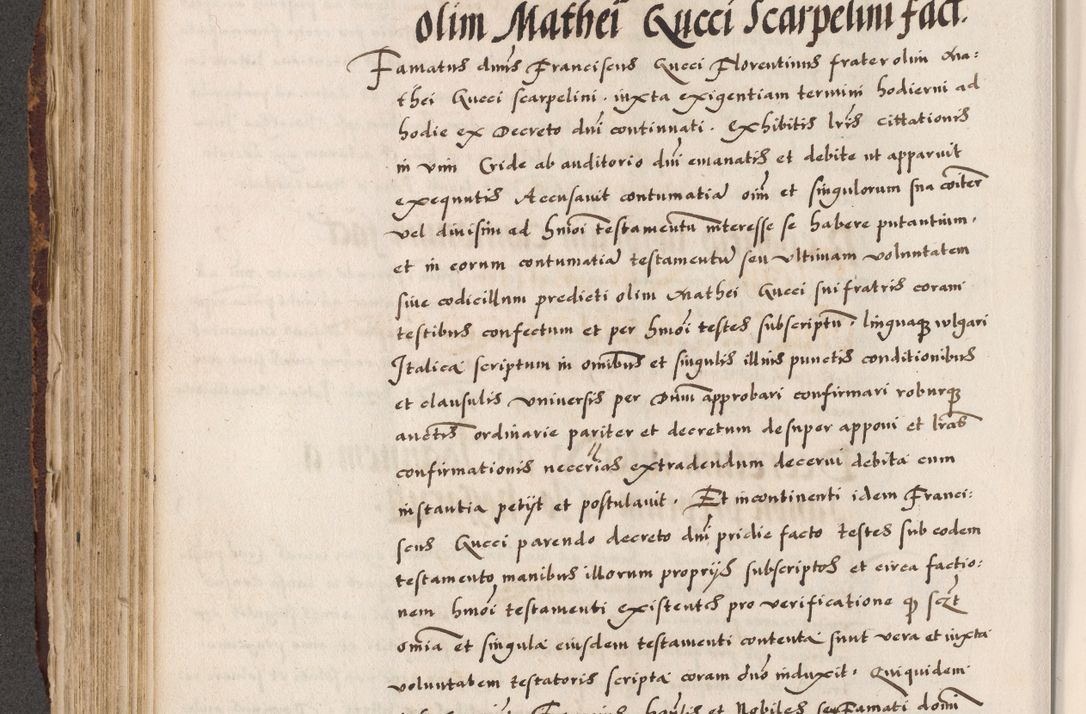 olim Mathei Gucci Scarpelini fact.
Famatus dnus Franciscus Gucci Florentinus frater olim Ma:
thei Gucci scarpelini. iuxta exigentiam termini hodierni ad
hodie ex Decreto dni continuati. Exhibitis lris cittationis
in vim Cride ab auditorio dni emanatis et debite ut apparuit
exequutis Accusauit contumatia oim et singulorum sua coiter
vel diuisim ad hmoi testamentu interesse se habere putantium.
et in eorum contumatia testamentu seu vltimam voluntatem
siue codicillum predicti olim Mathei Gucci sui fratris coram
testibus confectum et per hmoi testes subscriptu. linguaq vlgari
Italica scriptum in omibus et singulis illius punctis conditionibus
et clausulis vniuersis per Dnum approbari confirmari roburq
auctis ordinarie pariter et decretum desuper apponi et lras
confirmationis necerias extradendum decerni debita cum
instantia petijt et postulauit. Et incontinenti idem Franci:
scus Gucci parendo decreto dni pridie facto testes sub eodem
testamento manibus illorum proprijs subscriptos et circa factio:
nem hmoi testamenti existentes pro verificatione q sczt
omia et singula eiusdem testamenti contenta sunt vera et iuxta
voluntatem testatoris scripta coram dno induxit. Quiquidem
et Nobiles Famati domi